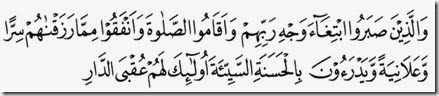 وَالَّذِيْنَ صَبَرُوا ابْتِغَآءَ وَجْهِ رَبِّهِمْ وَاَقَامُوا الصَّلٰوةَ وَاَنْفَقُوْا مِمَّا رَزَقْنٰهُمْ سِرًّا
وَّعَلَانِيَةً وَّيَدْرَءُوْنَ بِالْحَسَنَةِ السَّيِّئَةَ اُولٰٓئِكَ لَهُمْ عُقْبَى الدَّارِ